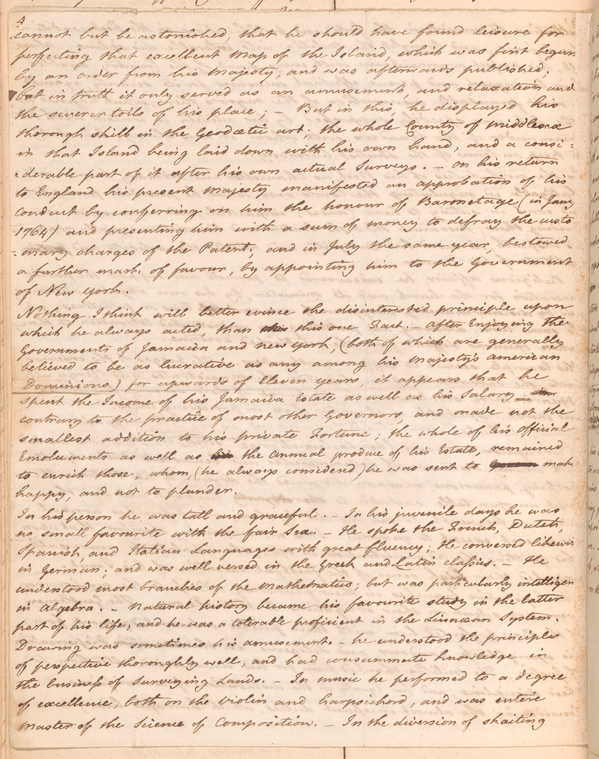 4
cannot but be astonished, that he should have found leisure for
perfecting that excellent Map of the Island, which was first begun
by an order from his Majesty, and was afterwards published;
but in truth it only served as an amusement, and relaxation and
the severer toils of his place; – But in this, he displayed his
thorough skill in the Geodætic art: the whole County of Middlesex
in that Island being laid down with his own hand, and a consi-
:derable part of it after his own actual Surveys. – On his return
to England his present Majesty manifested an approbation of his
conduct by conferring on him the honour of Baronetage (in Jany
1764) and presenting him with a sum of money to defray the custo
:mary charges of the Patent; and in July the same year bestowed
a further mark of favour, by appointing him to the Government
of New York.
Nothing I think will better evince the disinterested principle upon
which he always acted, than this one Fact. – After Enjoying the
Governments of Jamaica and New York, (both of which are generally
believed to be as lucrative as any among his Majesty's American
Dominions) for upwards of Eleven years, it appears that he
spent the Income of his Jamaica Estate as well as his Salary –
contrary to the practice of most other Governors and made not the
smallest addition to his private Fortune; the whole of his official
Emoluments as well as the annual produce of his Estate, remained
to enrich those, whom, (he always considered) he was sent to make
happy, and not to plunder.
In his person he was tall and graceful. – In his juvenile days he was
no small favourite with the fair Sex. – He spoke the French, Dutch,
Spanish and Italian Languages with great fluency; He conversed likewise
in German; and was well versed in the Greek and Latin classics. – He
understood most branches of the Mathematics; but was particularly intelligen
in Algebra. – Natural history became his favourite study in the latter
part of his life, and he was a tolerable proficient in the Linnæan System.
Drawing was sometimes his amusement. – he understood the principles
of perspective thoroughly well, and had consummate knowledge in
the business of surveying Lands. – In music he performed to a degree
of excellence, both on the Violin and Harpsichord, and was entire
Master of the Science of Composition. – In the diversion of skaiting